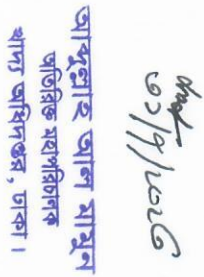 ৩১/৭/২০২৫
আব্দুল্লাহ আল মামুন
অতিরিক্ত মহাপরিচালক
খাদ্য অধিদপ্তর, ঢাকা।